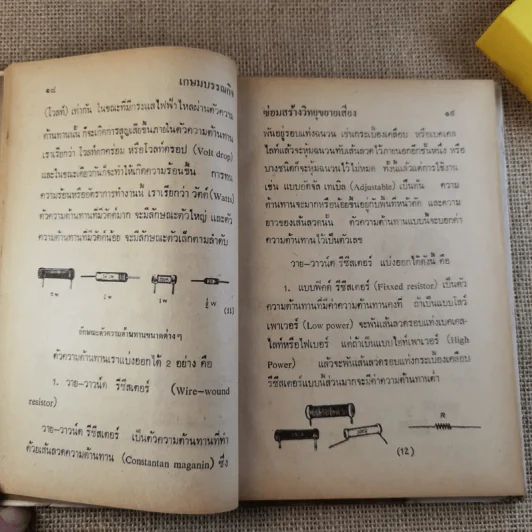 ๑๘ เกษมบรรณกิจ
(โวลท์) เท่ากัน ในขณะที่มีกระแสไฟฟ้าไหลผ่านตัวความ
ต้านทานนั้น ก็จะเกิดการสูญเสียขึ้นภายในตัวความต้านทาน
เราเรียกว่า โวลท์ตกคร่อม หรือโวลท์ดรอป (Volt drop)
และในขณะเดียวกันก็จะทำให้เกิดความร้อนขึ้น การทน
ความร้อนหรืออัตราการทำงานนี้ เราเรียกว่า วัตต์ (Watts)
ตัวความต้านทานที่มีวัตต์มาก จะมีลักษณะตัวใหญ่ และตัว
ความต้านทานที่มีวัตต์น้อย จะมีลักษณะตัวเล็กตามลำดับ
1 w
½ W
(11)
ลักษณะตัวความต้านทานขนาดต่างๆ
ตัวความต้านทานเราแบ่งออกได้ 2 อย่าง คือ
1. วาย-วาวน์ด รีซีสเตอร์ (Wire-wound
resistor)
วาย-วาวน์ด รีซีสเตอร์ เป็นตัวความต้านทานที่ทำ
ด้วยเส้นลวดความต้านทาน (Constantan maganin) ซึ่ง
ซ่อมสร้างวิทยุขยายเสียง ๑๙
พันอยู่รอบแท่งฉนวน เช่นกระเบื้องเคลือบ หรือเบคเคล
ไลท์แล้วจะหุ้มฉนวนทับเส้นลวดไว้ภายนอกอีกชั้นหนึ่ง หรือ
บางชนิดก็จะหุ้มฉนวนไว้ไม่หมด ทั้งนี้แล้วแต่การใช้งาน
เช่น แบบอัดจัส เทเบิล (Adjustable) เป็นต้น ความ
ต้านทานจะมากหรือน้อยขึ้นอยู่กับพื้นที่หน้าตัด และความ
ยาวของเส้นลวดนั้น ตัวความต้านทานแบบนี้จะบอกค่า
ความต้านทานไว้เป็นตัวเลข
วาย-วาวน์ด รีซีสเตอร์ แบ่งออกได้ดังนี้ คือ
1. แบบฟิคด์ รีซีสเตอร์ (Fixxed resistor) เป็นตัว
ความต้านทานที่มีค่าความต้านทานคงที่ ถ้าเป็นแบบโลว์
เพาเวอร์ (Low power) จะพันเส้นลวดรอบแท่งเบคเคล-
ไลท์หรือไฟเบอร์ แต่ถ้าเป็นแบบไฮท์เพาเวอร์ (High
Power) แล้วจะพันเส้นลวดรอบแท่งกระเบื้องเคลือบ
รีซีสเตอร์แบบนี้ส่วนมากจะมีค่าความต้านทานต่ำ
R
(12)